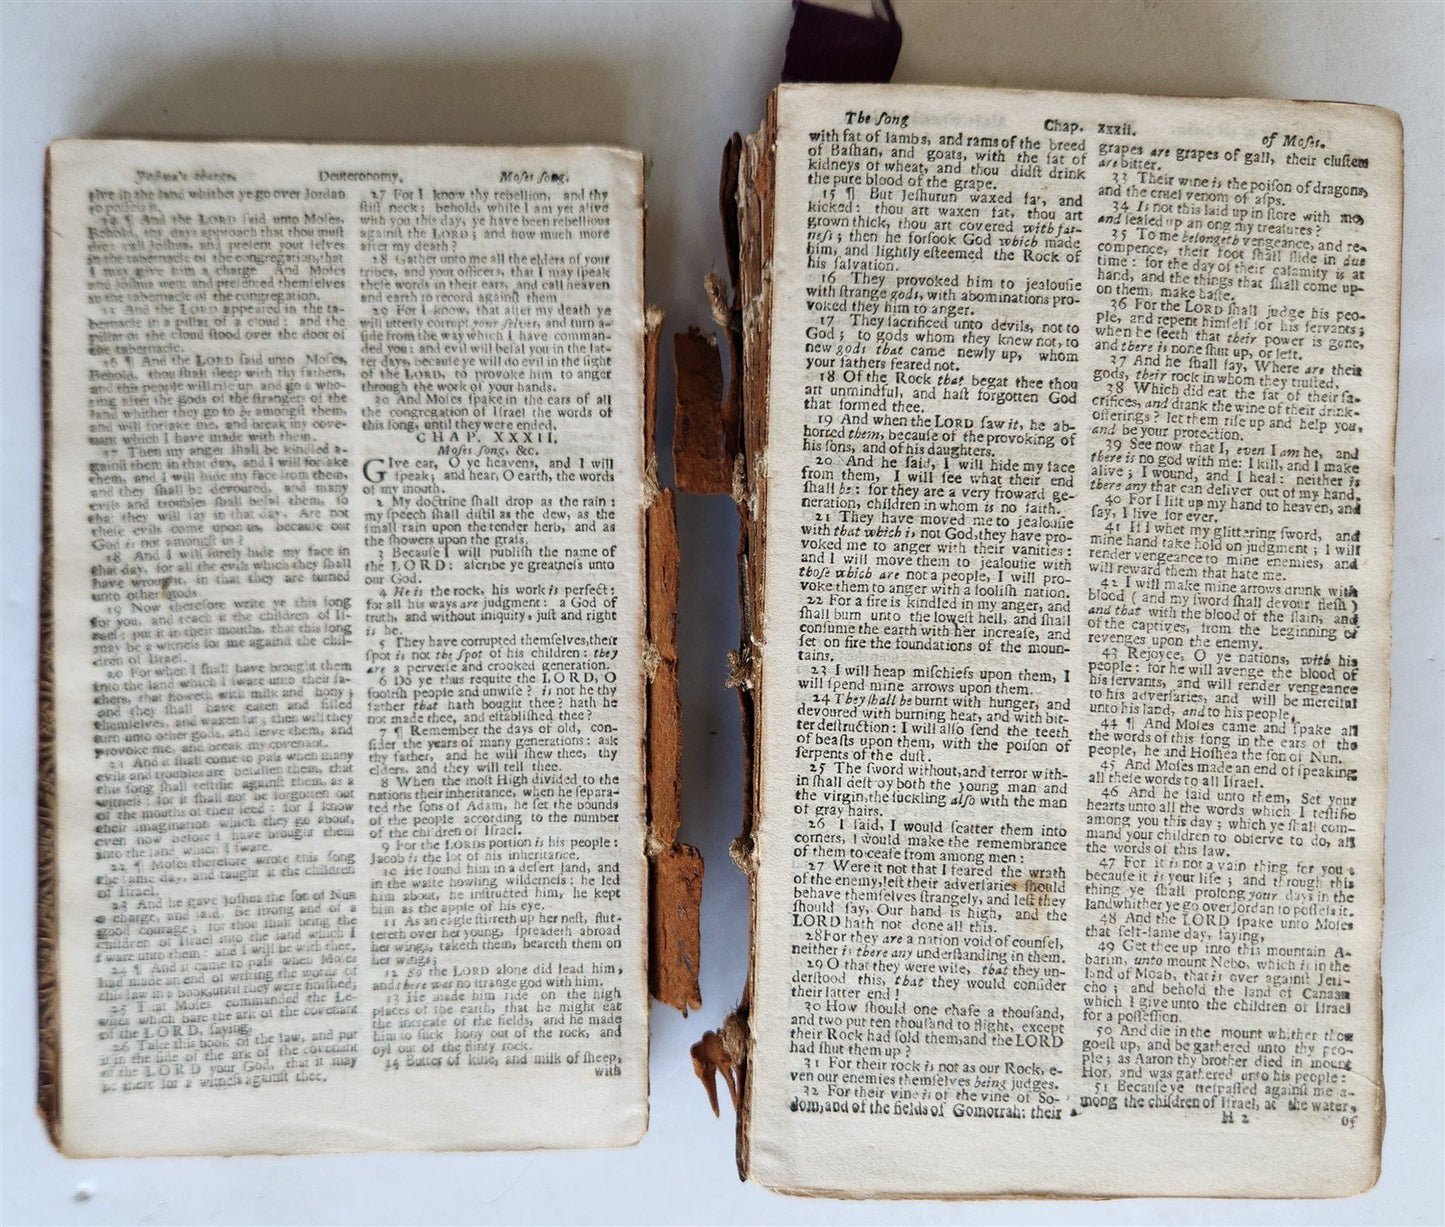 Joshua's charge. Deuteronomy. Moses song.
give in the land whither ye go over Jordan
to possess it.
14 ¶ And the LORD said unto Moses,
Behold, thy days approach that thou must
die: call Joshua, and present your selves
in the tabernacle of the congregation, that
I may give him a charge. And Moses
and Joshua went and presented themselves
in the tabernacle of the congregation.
15 And the LORD appeared in the ta-
bernacle in a pillar of a cloud: and the
pillar of the cloud stood over the door of
the tabernacle.
16 ¶ And the LORD said unto Moses,
Behold, thou shalt sleep with thy fathers,
and this people will rise up, and go a who-
ring after the gods of the strangers of the
land whither they go to be amongst them,
and will forsake me, and break my cove-
nant which I have made with them.
17 Then my anger shall be kindled a-
gainst them in that day, and I will forsake
them, and I will hide my face from them,
and they shall be devoured, and many
evils and troubles shall befal them, so
that they will say in that day, Are not
these evils come upon us, because our
God is not amongst us?
18 And I will surely hide my face in
that day, for all the evils which they shall
have wrought, in that they are turned
unto other gods.
19 Now therefore write ye this song
for you, and teach it the children of Is-
rael: put it in their mouths, that this song
may be a witness for me against the chil-
dren of Israel.
20 For when I shall have brought them
into the land which I sware unto their fa-
thers, that floweth with milk and hony;
and they shall have eaten and filled
themselves, and waxen fat; then will they
turn unto other gods, and serve them, and
provoke me, and break my covenant.
21 And it shall come to pass when many
evils and troubles are befallen them, that
this song shall testifie against them, as a
witness: for it shall not be forgotten out
of the mouths of their seed: for I know
their imagination which they go about,
even now before I have brought them
into the land which I sware.
22 ¶ Moses therefore wrote this song
the same day, and taught it the children
of Israel.
23 And he gave Joshua the son of Nun
a charge, and said, Be strong and of a
good courage; for thou shalt bring the
children of Israel into the land which I
sware unto them: and I will be with thee.
24 ¶ And it came to pass when Moses
had made an end of writing the words of
this law in a book, until they were finished;
25 That Moses commanded the Le-
vites which bare the ark of the covenant
of the LORD, saying,
26 Take this book of the law, and put
it in the side of the ark of the covenant
of the LORD your God, that it may
be there for a witness against thee.
27 For I know thy rebellion, and thy
stiff neck: behold, while I am yet alive
with you this day, ye have been rebellious
against the LORD; and how much more
after my death?
28 Gather unto me all the elders of your
tribes, and your officers, that I may speak
these words in their ears, and call heaven
and earth to record against them
29 For I know, that after my death ye
will utterly corrupt your selves, and turn a-
side from the way which I have comman-
ded you: and evil will befal you in the lat-
ter days, because ye will do evil in the sight
of the LORD, to provoke him to anger
through the work of your hands.
30 And Moses spake in the ears of all
the congregation of Israel the words of
this song, until they were ended.
CHAP. XXXII.
Moses song, &c.
GIve ear, O ye heavens, and I will
speak; and hear, O earth, the words
of my mouth.
2 My doctrine shall drop as the rain:
my speech shall distil as the dew, as the
small rain upon the tender herb, and as
the showers upon the grass.
3 Because I will publish the name of
the LORD: ascribe ye greatness unto
our God.
4 He is the rock, his work is perfect:
for all his ways are judgment: a God of
truth, and without iniquity, just and right
is he.
5 They have corrupted themselves, their
spot is not the spot of his children: they
are a perverse and crooked generation.
6 Do ye thus requite the LORD, O
foolish people and unwise? is not he thy
father that hath bought thee? hath he
not made thee, and established thee?
7 ¶ Remember the days of old, con-
sider the years of many generations: ask
thy father, and he will shew thee, thy
elders, and they will tell thee.
8 When the most High divided to the
nations their inheritance, when he separa-
ted the sons of Adam, he set the bounds
of the people according to the number
of the children of Israel.
9 For the LORDS portion is his people:
Jacob is the lot of his inheritance.
10 He found him in a desert land, and
in the waste howling wilderness: he led
him about, he instructed him, he kept
him as the apple of his eye.
11 As an eagle stirreth up her nest, flut-
tereth over her young, spreadeth abroad
her wings, taketh them, beareth them on
her wings;
12 So the LORD alone did lead him,
and there was no strange god with him.
13 He made him ride on the high
places of the earth, that he might eat
the increase of the fields, and he made
him to suck hony out of the rock, and
oyl out of the flinty rock.
14 Butter of kine, and milk of sheep,
with
The song Chap. xxxii. of Moses.
with fat of lambs, and rams of the breed
of Bashan, and goats, with the fat of
kidneys of wheat, and thou didst drink
the pure blood of the grape.
15 ¶ But Jeshurun waxed fat, and
kicked: thou art waxen fat, thou art
grown thick, thou art covered with fat-
ness; then he forsook God which made
him, and lightly esteemed the Rock of
his salvation.
16 They provoked him to jealousie
with strange gods, with abominations pro-
voked they him to anger.
17 They sacrificed unto devils, not to
God; to gods whom they knew not, to
new gods that came newly up, whom
your fathers feared not.
18 Of the Rock that begat thee thou
art unmindful, and hast forgotten God
that formed thee.
19 And when the LORD saw it, he ab-
horred them, because of the provoking of
his sons, and of his daughters.
20 And he said, I will hide my face
from them, I will see what their end
shall be: for they are a very froward ge-
neration, children in whom is no faith.
21 They have moved me to jealousie
with that which is not God, they have pro-
voked me to anger with their vanities:
and I will move them to jealousie with
those which are not a people, I will pro-
voke them to anger with a foolish nation.
22 For a fire is kindled in my anger, and
shall burn unto the lowest hell, and shall
consume the earth with her increase, and
set on fire the foundations of the moun-
tains.
23 I will heap mischiefs upon them, I
will spend mine arrows upon them.
24 They shall be burnt with hunger, and
devoured with burning heat, and with bit-
ter destruction: I will also send the teeth
of beasts upon them, with the poison of
serpents of the dust.
25 The sword without, and terror with-
in shall destroy both the young man and
the virgin, the suckling also with the man
of gray hairs.
26 I said, I would scatter them into
corners, I would make the remembrance
of them to cease from among men:
27 Were it not that I feared the wrath
of the enemy, lest their adversaries should
behave themselves strangely, and lest they
should say, Our hand is high, and the
LORD hath not done all this.
28 For they are a nation void of counsel,
neither is there any understanding in them.
29 O that they were wise, that they un-
derstood this, that they would consider
their latter end!
30 How should one chase a thousand,
and two put ten thousand to flight, except
their Rock had sold them, and the LORD
had shut them up?
31 For their rock is not as our Rock, e-
ven our enemies themselves being judges.
32 For their vine is of the vine of So-
dom, and of the fields of Gomorrah: their
grapes are grapes of gall, their clusters
are bitter.
33 Their wine is the poison of dragons,
and the cruel venom of asps.
34 Is not this laid up in store with me,
and sealed up among my treasures?
35 To me belongeth vengeance, and re-
compence, their foot shall slide in due
time: for the day of their calamity is at
hand, and the things that shall come up-
on them, make haste.
36 For the LORD shall judge his peo-
ple, and repent himself for his servants;
when he seeth that their power is gone,
and there is none shut up, or left.
37 And he shall say, Where are their
gods, their rock in whom they trusted,
38 Which did eat the fat of their sa-
crifices, and drank the wine of their drink-
offerings? let them rise up and help you,
and be your protection.
39 See now that I, even I am he, and
there is no god with me: I kill, and I make
alive; I wound, and I heal: neither is
there any that can deliver out of my hand.
40 For I lift up my hand to heaven, and
say, I live for ever.
41 If I whet my glittering sword, and
mine hand take hold on judgment; I will
render vengeance to mine enemies, and
will reward them that hate me.
42 I will make mine arrows drunk with
blood (and my sword shall devour flesh)
and that with the blood of the slain, and
of the captives, from the beginning of
revenges upon the enemy.
43 Rejoyce, O ye nations, with his
people: for he will avenge the blood of
his servants, and will render vengeance
to his adversaries, and will be merciful
unto his land, and to his people.
44 ¶ And Moses came and spake all
the words of this song in the ears of the
people, he and Hoshea the son of Nun.
45 And Moses made an end of speaking
all these words to all Israel.
46 And he said unto them, Set your
hearts unto all the words which I testifie
among you this day; which ye shall com-
mand your children to observe to do, all
the words of this law.
47 For it is not a vain thing for you;
because it is your life; and through this
thing ye shall prolong your days in the
land whither ye go over Jordan to possess it.
48 And the LORD spake unto Moses
that self-same day, saying,
49 Get thee up into this mountain A-
barim, unto mount Nebo, which is in the
land of Moab, that is over against Jeri-
cho; and behold the land of Canaan
which I give unto the children of Israel
for a possession.
50 And die in the mount whither thou
goest up, and be gathered unto thy peo-
ple; as Aaron thy brother died in mount
Hor, and was gathered unto his people:
51 Because ye trespassed against me a-
mong the children of Israel, at the water,
H 2 of